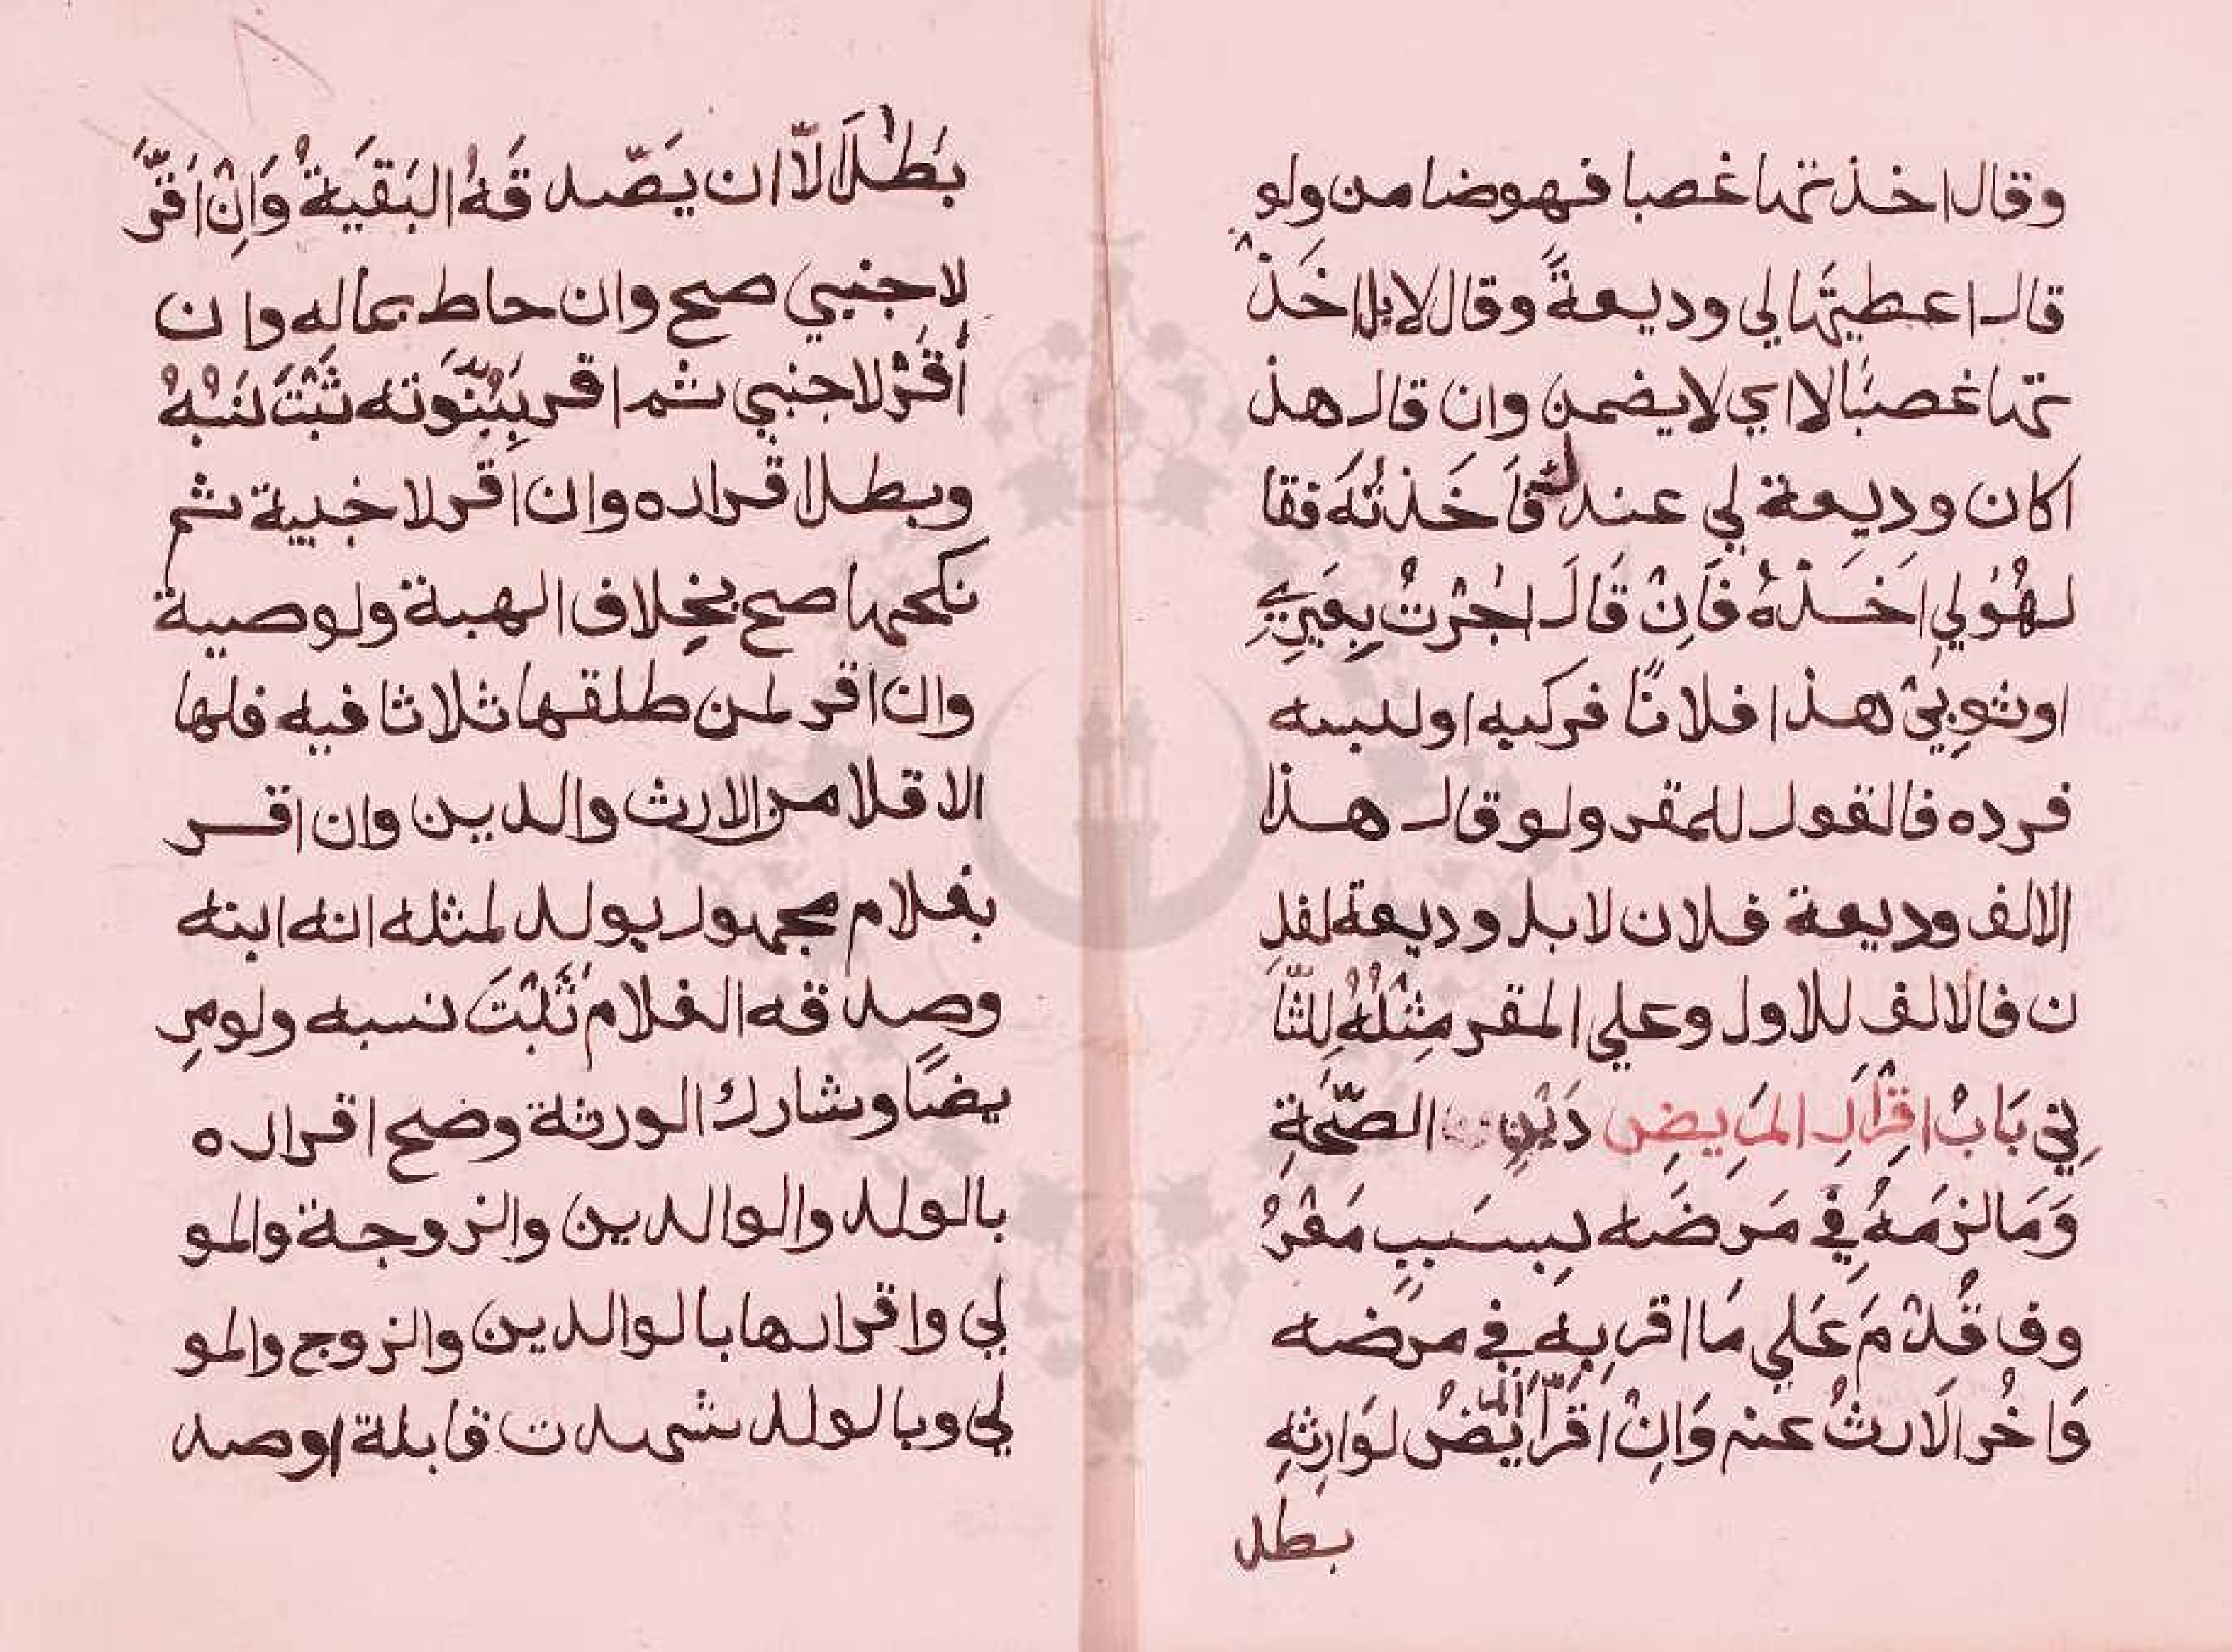 وقال اخذتها غصبا فهوضا من ولو
قال اعطيتها لي وديعةً وقال لا بل اخَذْ
تها غصبًا لا اي لا يضمن وان قال هذ
اكان وديعة لي عندك فَاَخَذْتُهَ فقا
ل هُوَلي اخَذْهُ فَاِنْ قَالَ اجُرْتُ بِعَيرِي
اوثوبِيْ هذا فلانًا فركبه اوللبسه
فرده فالقول للمقر ولو قال هذا
الالف وديعة فلان لا بل وديعة لفلِ
ن فالالف للاول وعلي المقر مِثْلُهُ لِلثَّا
نِي بَابُ اقِرْاَرِ المَرِيضِ دَيْنِ الصّحَّةِ
وَمَا لزمَهُ فِي مَرضَه بسَببٍ مَعْرُ
وف قُدْمَ عَلي مَا اقر بِهِ في مرضه
وَاخُر الَارثُ عنه وَاِنْ اقَرّ المَرِيْضُ لوَارِثِهِ
بطل
بَطَلَ الّا ان يَصّدقَهُ البَقيَةُ وَاِنْ اَقَرَّ
لاجنبي صح وان حاط بماله وان
أَقَرْ لاجنبي ثم اقر بِبُنّوَته ثَبْتَ نَسْبهُ
وبطل اقراره وان اقر لاخبية ثم
نكحها صح بخلاف الهبة ولوصية
وان اقر لمن طلقها ثلاثا فيه فلها
الاقلا من الارث والدين وان اقر
بغلام مجهول يولد لمثله انه ابنه
وصدقه الغلام ثَبْتَ نسبه ولومر
يضًا وشارك الورثة وضح اقراره
بالولد والوالدين والزوجة والمو
لي واقرارها بالوالدين والزوج والمو
لي وبالولد شهدت قابلة اوصد